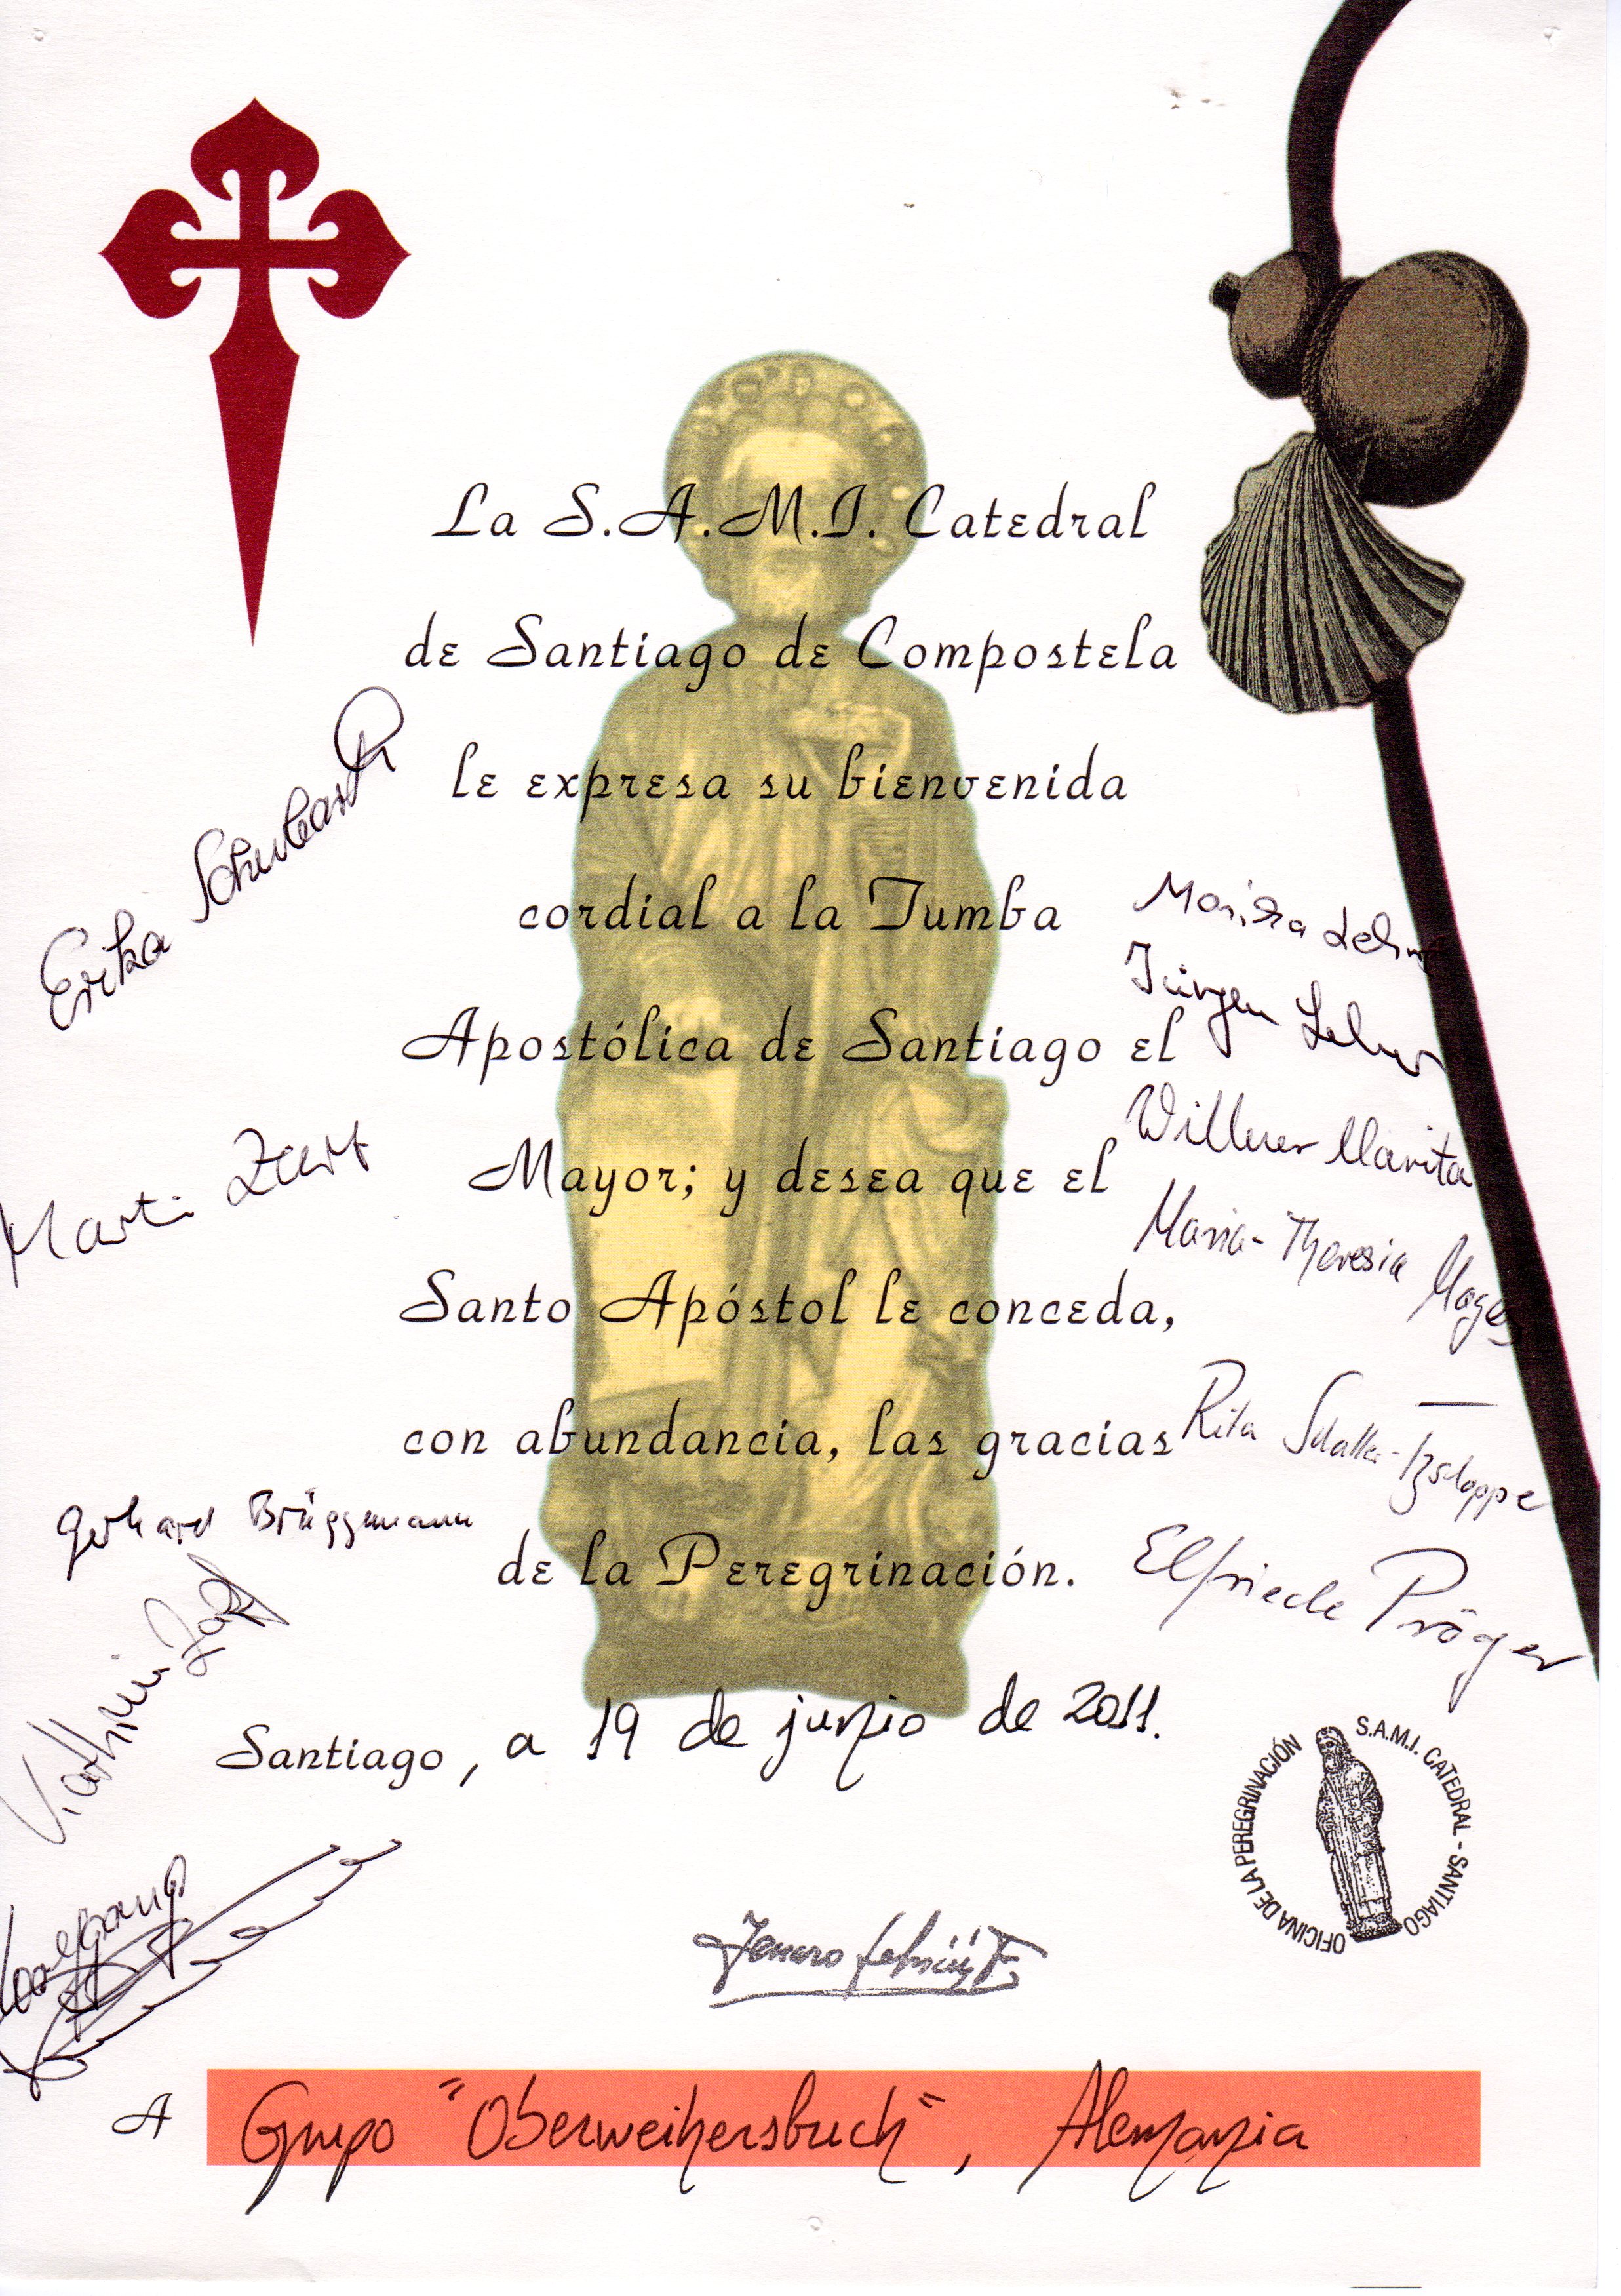 La S.A.M.I. Catedral
de Santiago de Compostela
le expresa su bienvenida
cordial a la Tumba
Apostólica de Santiago el
Mayor; y desea que el
Santo Apóstol le conceda,
con abundancia, las gracias
de la Peregrinación.
Santiago, a 19 de junio de 2011.
Erika
Martin
Gerhard Brüggemann
Kathrin
Wolfgang
Monika
Jürgen
Marita
Maria-Theresia
Rita
Elfriede Pröger
OFICINA DE LA PEREGRINACIÓN S.A.M.I. CATEDRAL - SANTIAGO
A Grupo "Oberweihersbuch", Alemania